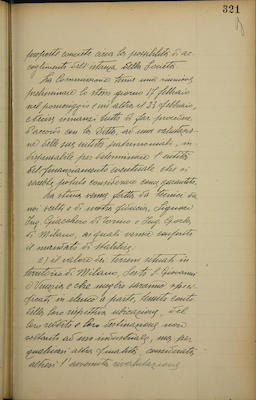 321
proposte concrete circa la possibilità di ac-
coglimento dell'istanza della Società.
La Commissione tenne una riunione
preliminare lo stesso giorno 17 febbraio
nel pomeriggio e un'altra il 23 febbraio
e decise innanzi tutto di far procedere
d'accordo con la Ditta, ad una valutazio-
ne delle sue entità patrimoniali, in-
dispensabile per determinare l'entità
del finanziamento eventuale che si
sarebbe potuto considerare come garantito.
La stima venne fatta da tecnici da
noi scelti e di nostra fiducia, Signori
Ing. di Torino e Ing.
di Milano, ai quali venne conferito
il mandato di stabilire:
a) il valore dei terreni situati in
territorio di Milano, Sesto S. Giovanni
e Venezia e che meglio saranno speci-
ficati in elenco a parte, tenuto conto
della loro rispettiva ubicazione, del
loro reddito e loro destinazione non
soltanto ad uso industriale, ma per
qualsiasi altra finalità, considerata
altresì l'avvenuta rivalutazione